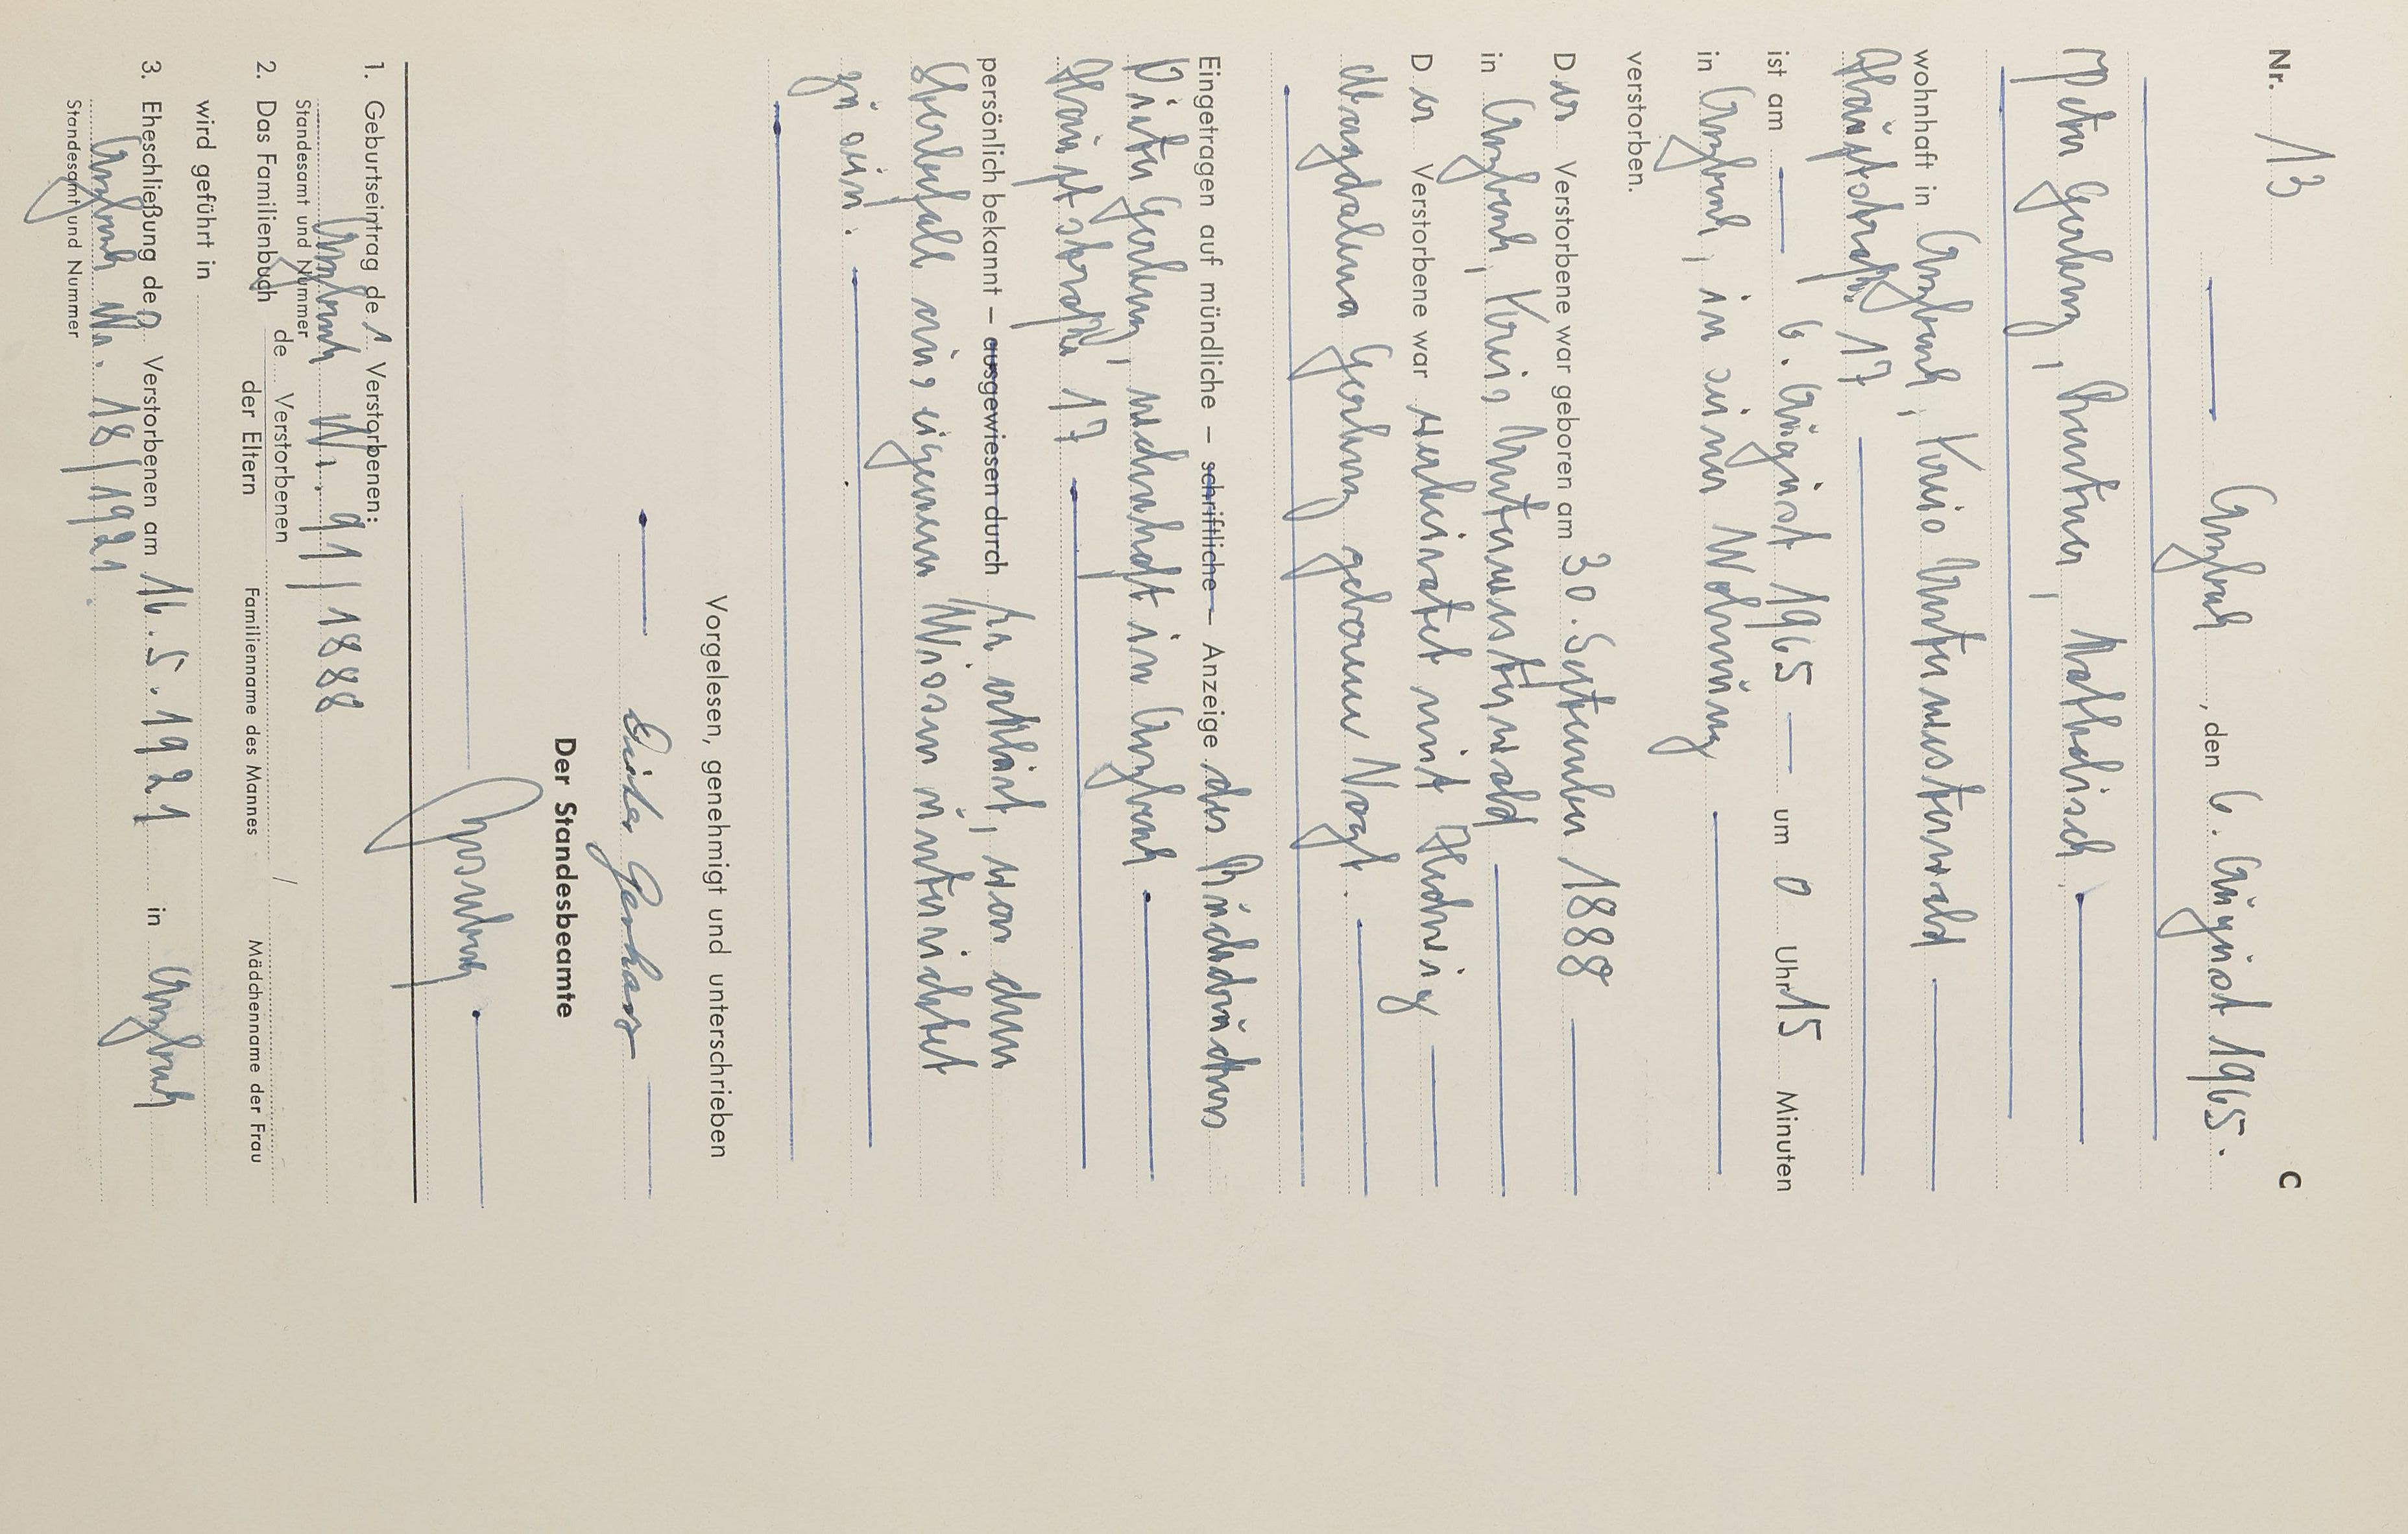 Nr. 13 C
Arzbach, den 6. August 1965.
Peter Gerharz, Rentner, katholisch
wohnhaft in Arzbach, Kreis Unterwesterwald
Hauptstraße 17
ist am 6. August 1965 um 0 Uhr 15 Minuten
in Arzbach, in seiner Wohnung
verstorben.
Der Verstorbene war geboren am 30. September 1888
in Arzbach, Kreis Unterwesterwald
Der Verstorbene war verheiratet mit Hedwig
Magdalena Gerharz geborene Vogt.
Eingetragen auf mündliche – schriftliche – Anzeige des
Dieter Gerharz, wohnhaft in Arzbach
Hauptstraße 17
persönlich bekannt – ausgewiesen durch Er erklärt, von dem
Sterbefall aus eigenem Wissen unterrichtet
zu sein.
Vorgelesen, genehmigt und unterschrieben
Dieter Gerharz
Der Standesbeamte
1. Geburtseintrag des Verstorbenen:
Arzbach Nr. 91/1888
Standesamt und Nummer
2. Das Familienbuch de Verstorbenen / der Eltern
Familienname des Mannes / Mädchenname der Frau
wird geführt in
3. Eheschließung des Verstorbenen am 16.5.1921 in Arzbach
Arzbach Nr. 18/1921
Standesamt und Nummer